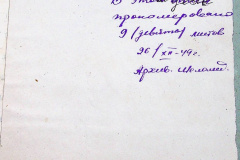 В этом деле
пронумеровано
9 (девять) листов
20/XII-49г.
Архив.